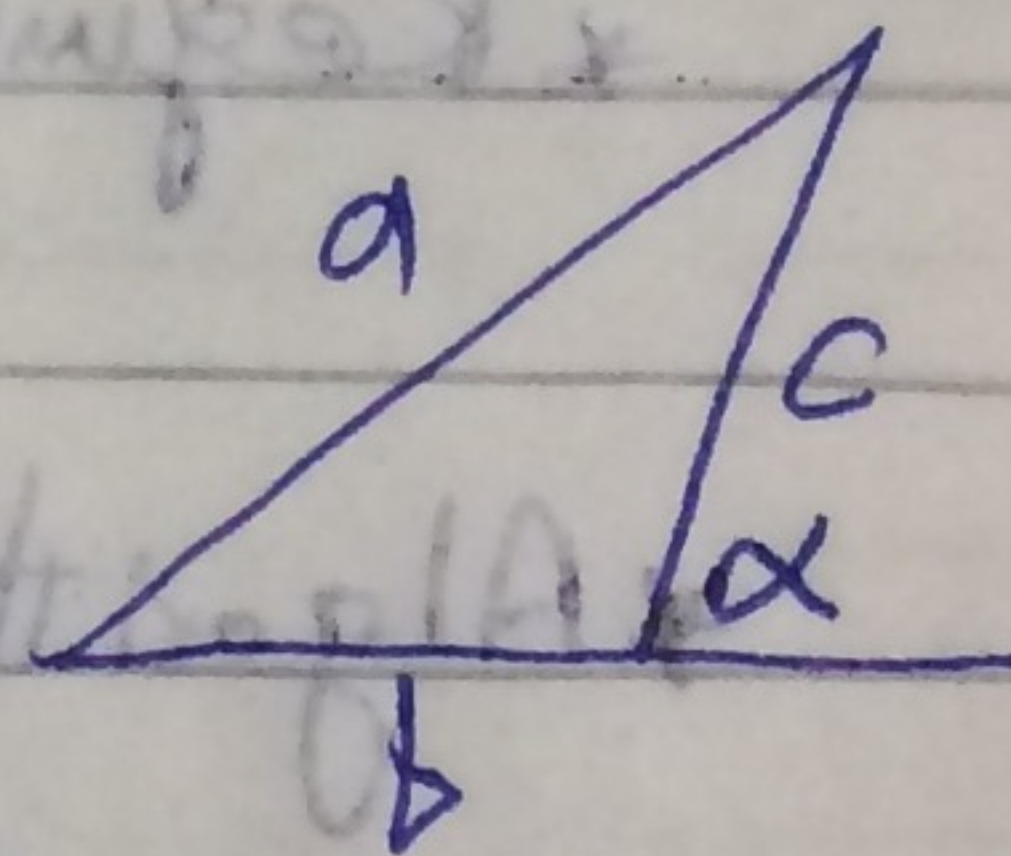 a
c
α
b